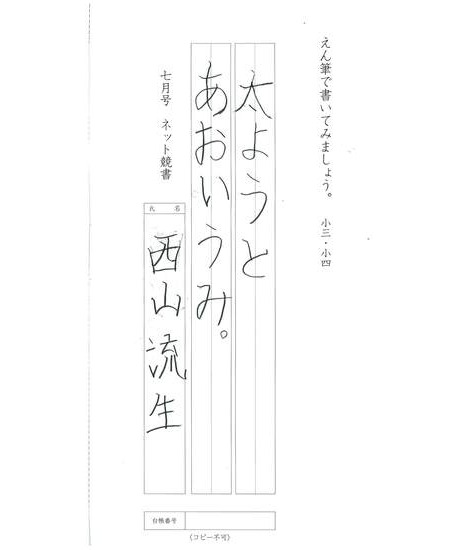 えん筆で書いてみましょう。 小三・小四
太ようと
あおいうみ。
七月号 ネット競書
氏 名
西山流生
台帳番号
(コピー不可)